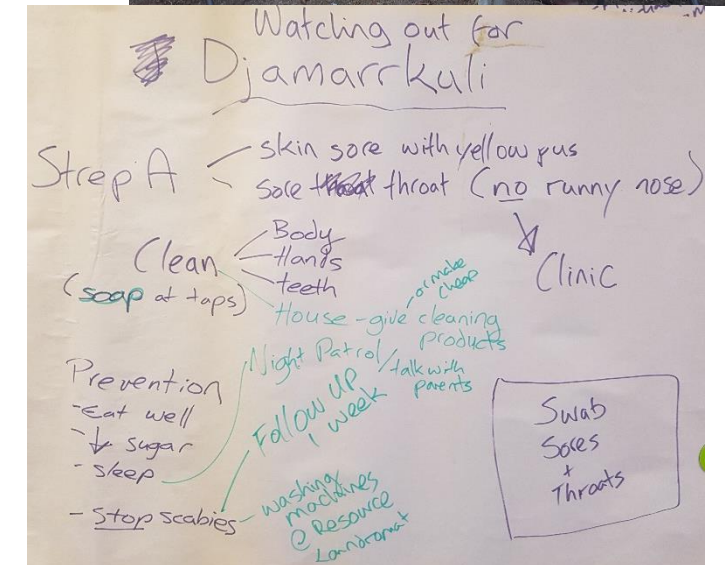 Watching out for
Djamarrkuli
Strep A
skin sore with yellow pus
sore throat (no runny nose)
Clinic
Clean
(soap at taps)
Body
Hands
teeth
House - give cleaning
products
or make
cheap
Night Patrol / talk with
parents
Prevention
- Eat well
- ↓ sugar
- sleep
- Stop scabies
Follow up
1 week
washing
machines
@ Resource
Laundromat
Swab
Sores
+
Throats